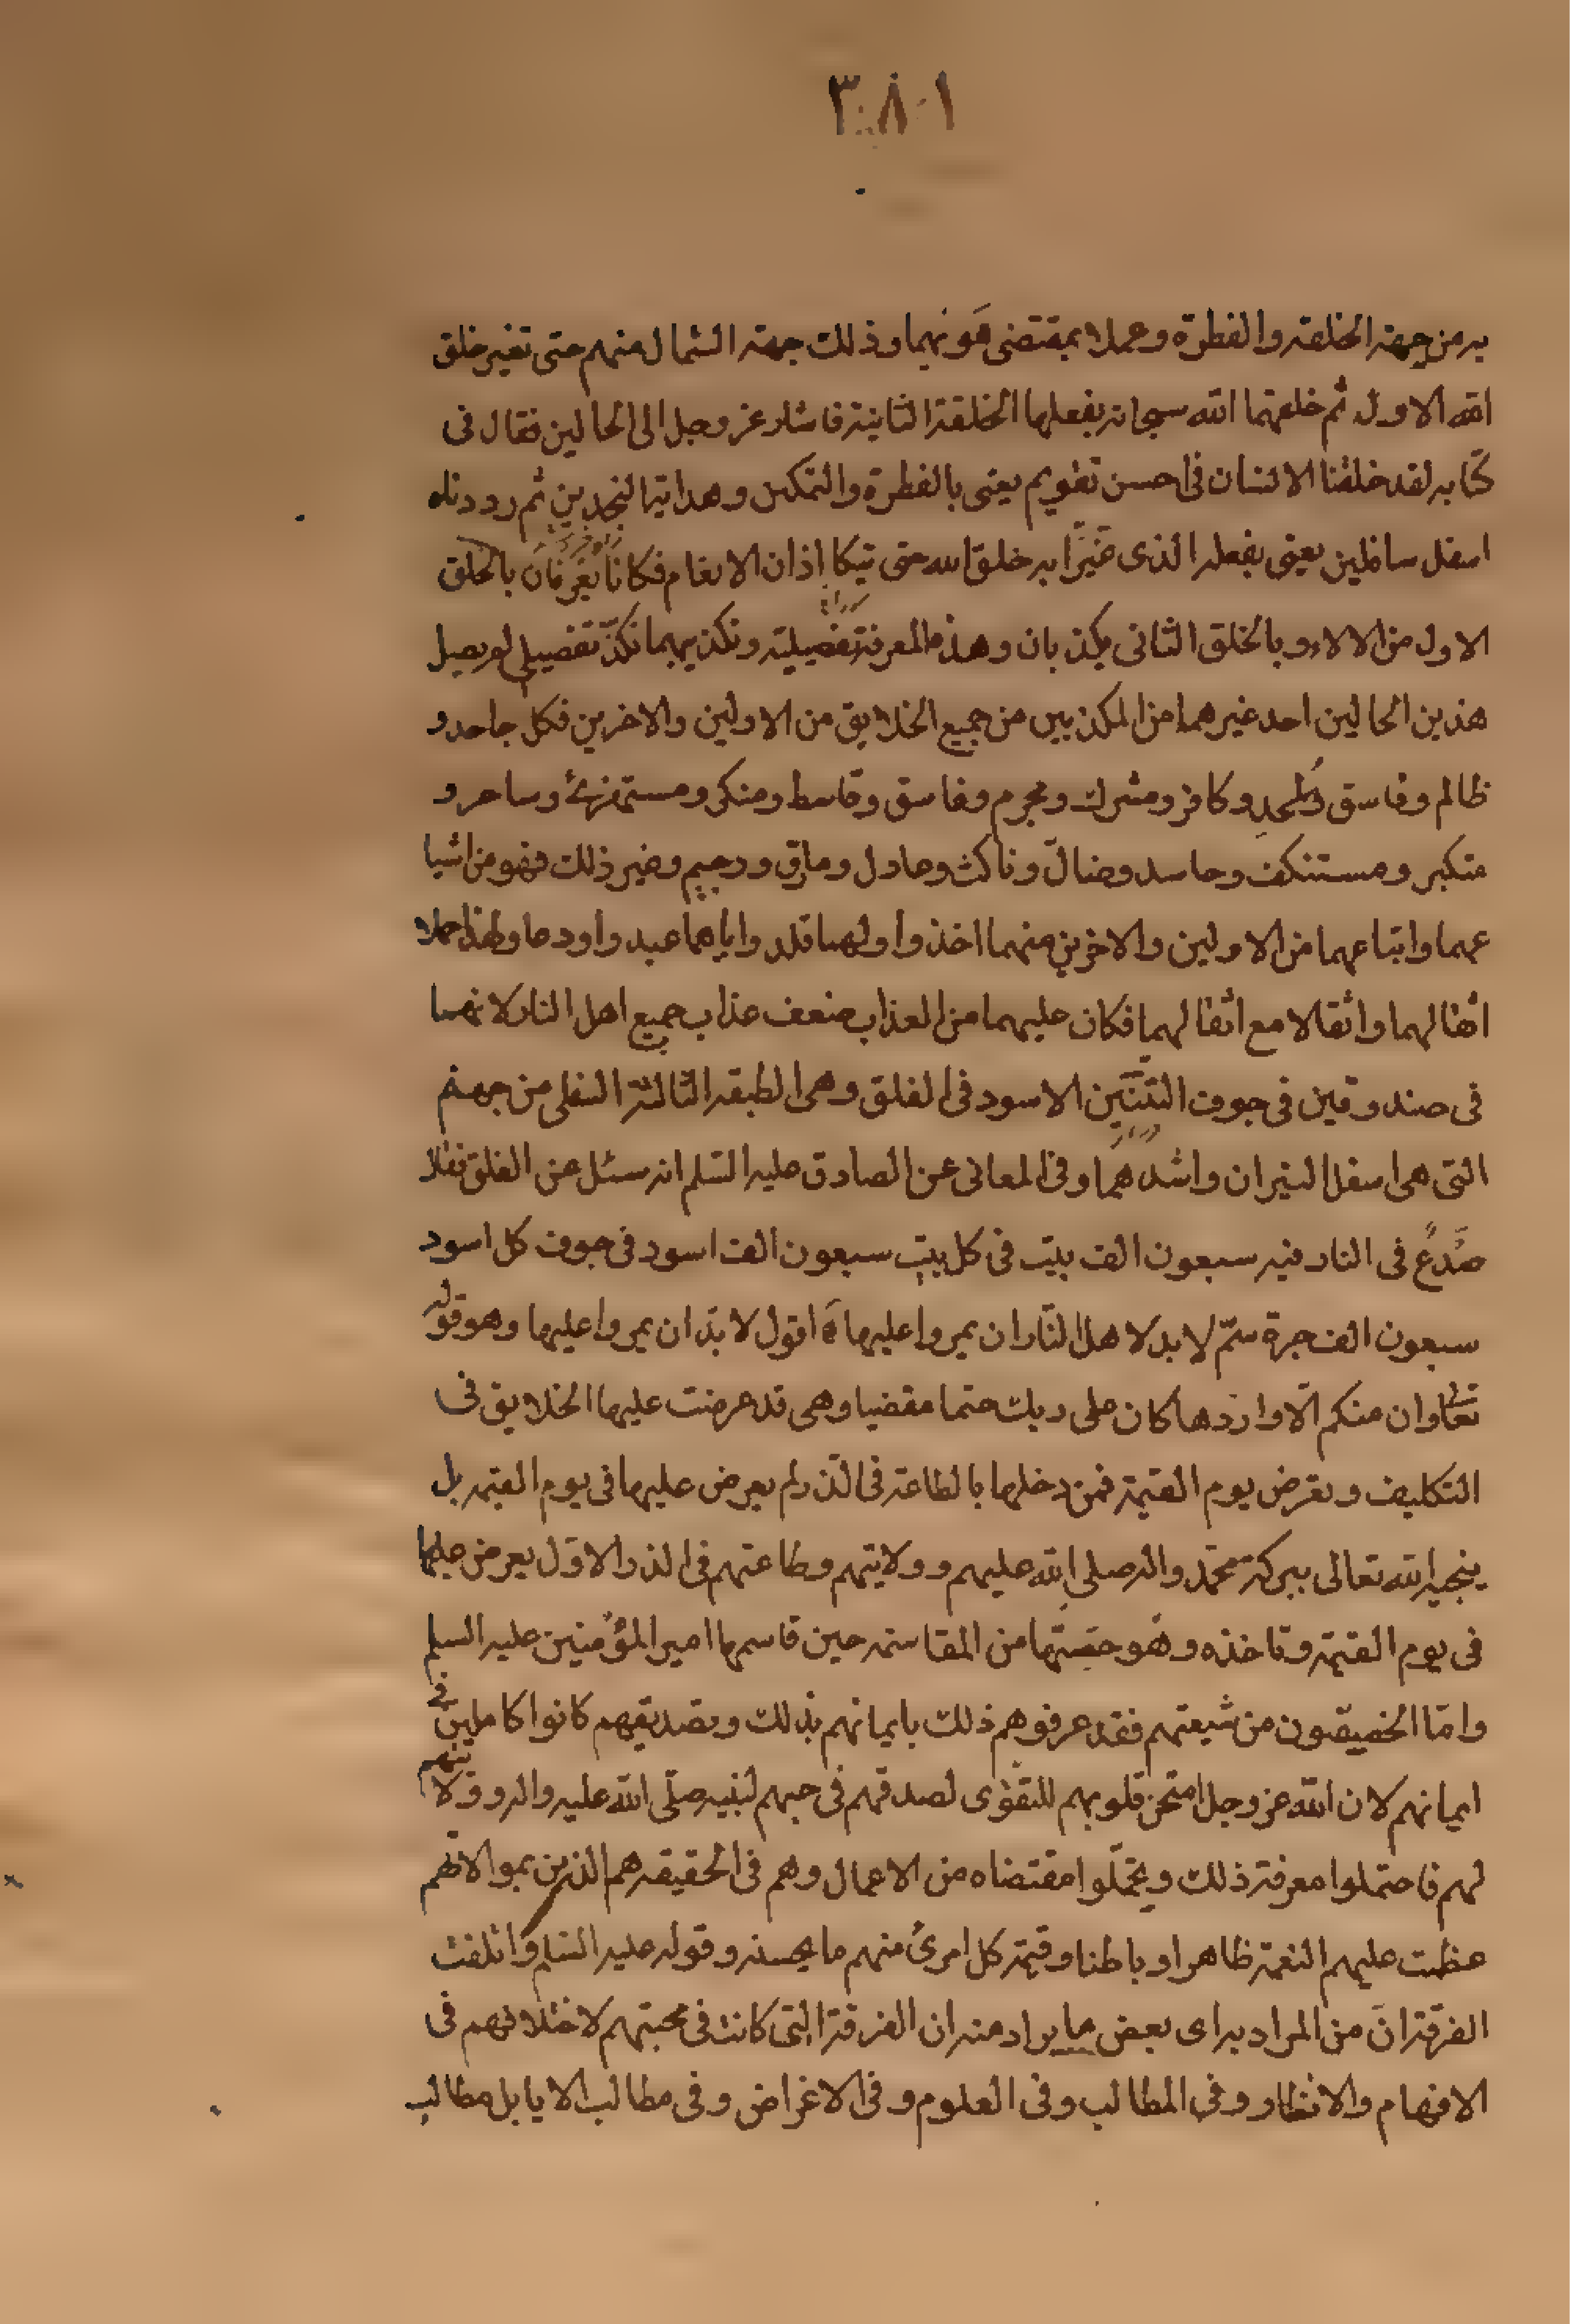 ٣٠٨٠١
به من جهة الخلقة والفطرة وعملا بمقتضى هَونهما وذلك جهة الشمال منهم حتى تغير خلق
الله الاول ثم خلقهما الله سبحانه بفعلها الخلقة الثانية فاشار عز وجل الى الحالين فقال فى
كتابه لقد خلقنا الانسان فى احسن تقويم يعنى بالفطرة والتمكين وهدايتها النجدين ثم رددناه
اسفل سافلين يعنى بفعله الذى غيّرا به خلق الله حتى بتّكا اذان الانعام فكانا يعرفان بالخلق
الاول من الالاء وبالخلق الثانى يكذبان وهذه المعرفة تفصيلية وتكذيبهما تكذّ تفصيلى لم يصل
هذين الحالين احد غيرهما من المكذبين من جميع الخلايق من الاولين والاخرين فكل جاحد و
ظالم وفاسق وملحد وكافر ومشرك ومجرم وفاسق وقاسط ومنكر ومستهزئ وساحر و
متكبر ومستنكف وحاسد وضالّ وناكث وعادل ومارق ورجيم وغير ذلك فهو من اشيا
عهما واتباعهما من الاولين والاخرين منهما اخذ واولهما قلد واياهما عبد واودعا ولهذا حملا
اثقالهما واثقالا مع اثقالهما فكان عليهما من العذاب ضعف عذاب جميع اهل النار لانهما
فى صندوقين فى جوف التنّين الاسود فى الفلق وهى الطبقة الثالثة السفلى من جهنم
التى هى اسفل النيران واشدهما وفى المعانى عن الصادق عليه السلم انه سئل عن الفلق فقال
صَدعٌ فى النار فيه سبعون الف بيت فى كل بيت سبعون الف اسود فى جوف كل اسود
سبعون الف جرة سمّ لابد لاهل النّار ان يمروا عليها ة اقول لابدّ ان يمروا عليها وهو قوله
تعالى وان منكم الّا واردها كان على ربك حتما مقضيا وهى قد عرضت عليها الخلايق فى
التكليف وتعرض يوم القيمة فمن دخلها بالطاعة فى الذر لم يعرض عليها فى يوم القيمة بل
ينجيه الله تعالى ببركة محمّد واله صلى الله عليهم وولايتهم وطاعتهم فى الذر والاوّل يعرض عليها
فى يوم القيمة وتاخذه وهو حصّتها من المقاسمة حين قاسمها امير المؤمنين عليه السلم
وامّا الخصيصون من شيعتهم فقد عرفوهم ذلك بايمانهم بذلك وبصديقهم كانوا كاملين فى
ايمانهم لان الله عز وجل امتحن قلوبهم للتقوى لصدقهم فى حبهم لنبيه صلّى الله عليه واله وولايتهم
لهم فاحتملوا معرفة ذلك وتحمّلوا مقتضاه من الاعمال وهم فى الحقيقه هم الذين بموالاتهم
عظمت عليهم النعمة ظاهرا وباطنا وقيمة كل امرئ منهم ما يحسنه وقوله عليه السلم وائلفت
الفرقة انّ من المراد به اى بعض ما يراد منه ان الفرقة التى كانت فى محبتهم لاختلافهم فى
الافهام والانظار وفى المطالب وفى العلوم وفى الاغراض وفى مطالب الايا بل مطالب